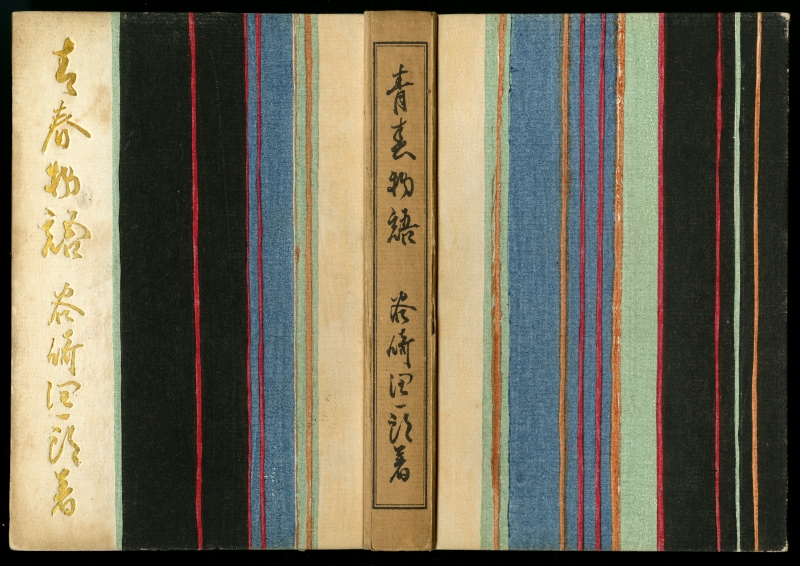 青春物語 谷崎潤一郎著
青春物語 谷崎潤一郎著